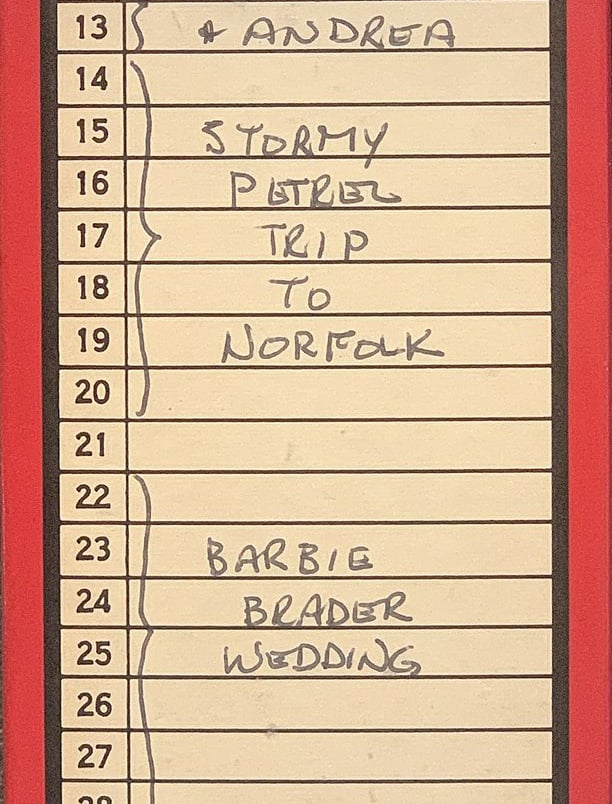 13 + ANDREA
14
15 STORMY
16 PETREL
17 TRIP
18 TO
19 NORFOLK
20
21
22
23 BARBIE
24 BRADER
25 WEDDING
26
27
28